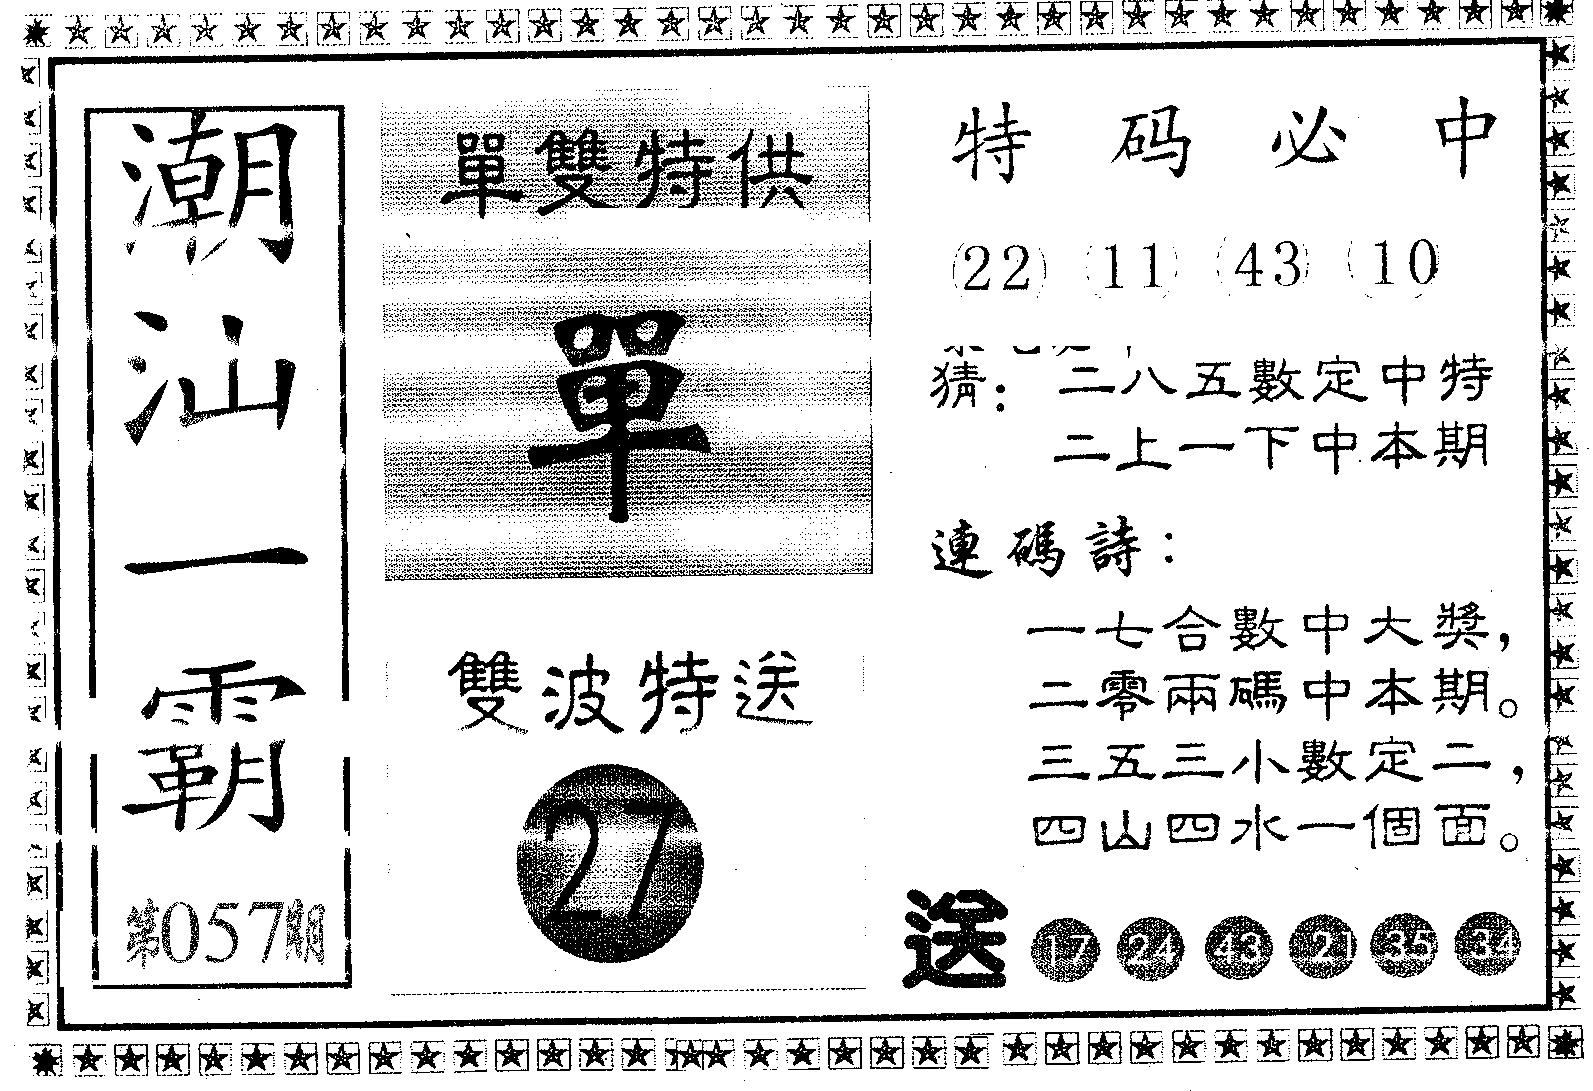 潮汕一霸
第057期
單雙特供
單
雙波特送
27
特码必中
22 11 43 10
猜：二八五數定中特
二上一下中本期
連碼詩：
一七合數中大獎，
二零兩碼中本期。
三五三小數定二，
四山四水一個面。
送 17 24 43 21 35 34